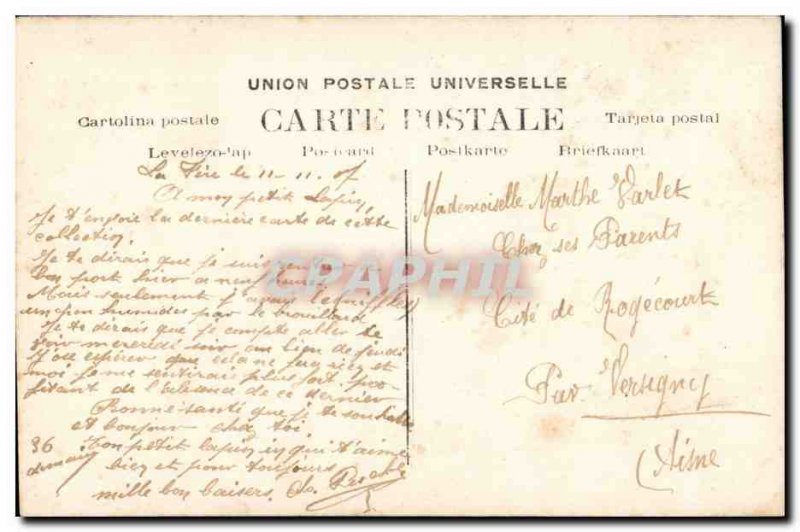 UNION POSTALE UNIVERSELLE
Cartolina postale CARTE POSTALE Tarjeta postal
Levelezo-lap Postcard Postkarte Briefkaart
La Fère le 11-11.07
A mon petit Lapin,
Je t'envoie la dernière carte de cette
collection.
Je te dirais que je suis
bon port hier a neuf heures
Mais seulement j'avais les
un peu humides par le brouillard
Je te dirais que je compte aller te
voir mercredi soir au lieu de jeudi
J'ose espérer que cela ne
moi je me sentirais plus fort pro-
fitant de l'absence de ce dernier
Bonne santé que je te souhaite
et bonjour chez toi
36 Ton petit lapin qui t'aime
demain bien et pour toujours
mille bon baisers.
CPAPHIL
Mademoiselle Marthe Varlet
Chez ses Parents
Cité de Rogécourt
Par Versigny
(Aisne